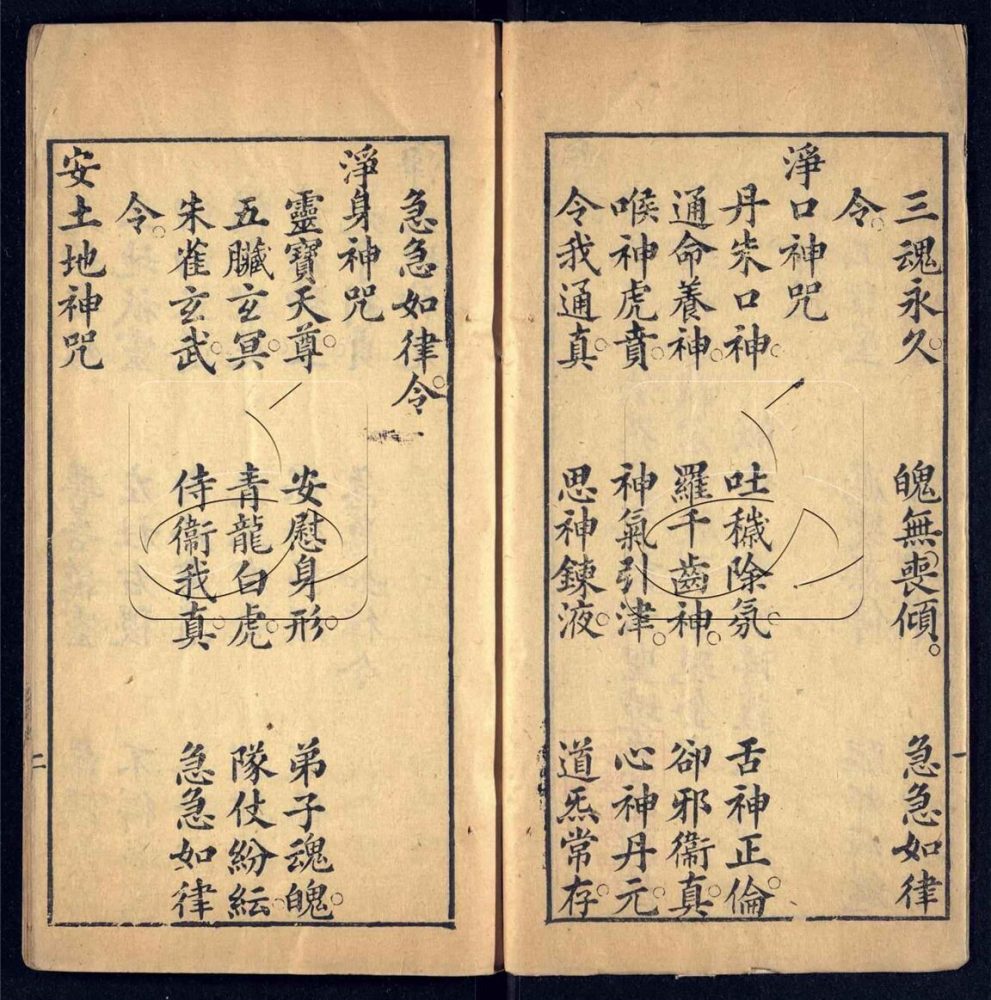 三魂永久。魄無喪傾。急急如律
令。
淨口神咒
丹朱口神。吐穢除氛。舌神正倫
通命養神。羅千齒神。卻邪衞真。
喉神虎賁。神氣引津。心神丹元。
令我通真。思神鍊液。道炁常存。
一
急急如律令。
淨身神咒
靈寶天尊。安慰身形。弟子魂魄。
五臟玄冥。青龍白虎。隊仗紛紜。
朱雀玄武。侍衞我真。急急如律
令。
安土地神咒
二